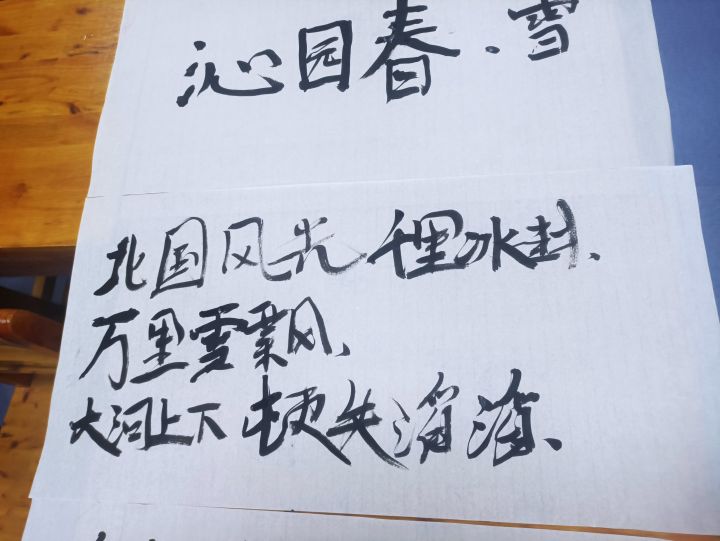 沁园春·雪
北国风光 千里冰封、
万里雪飘、
大河上下 顿失滔滔、